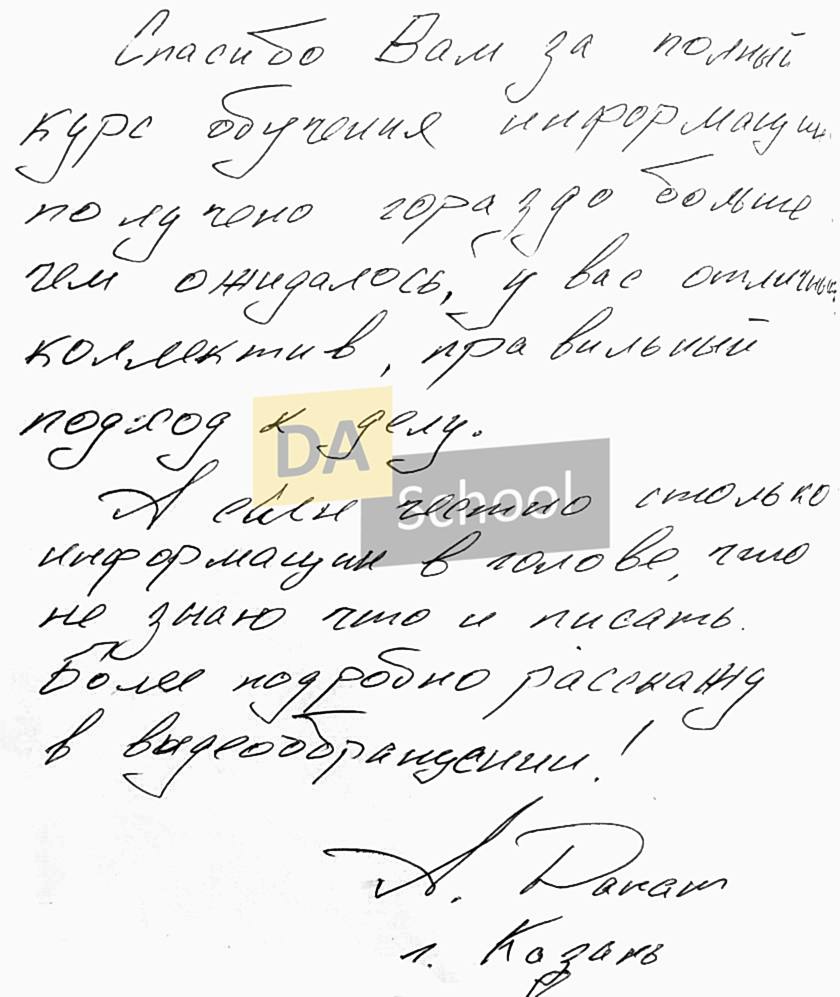 Спасибо Вам за полный
курс обучения информации
получено гораздо больше
чем ожидалось, у вас отличный
коллектив, правильный
подход к делу.
DA
School
А честно столько
информации в голове, что
не знаю что и писать.
Более подробно расскажу
в видеообращении!
А.
г. Казань